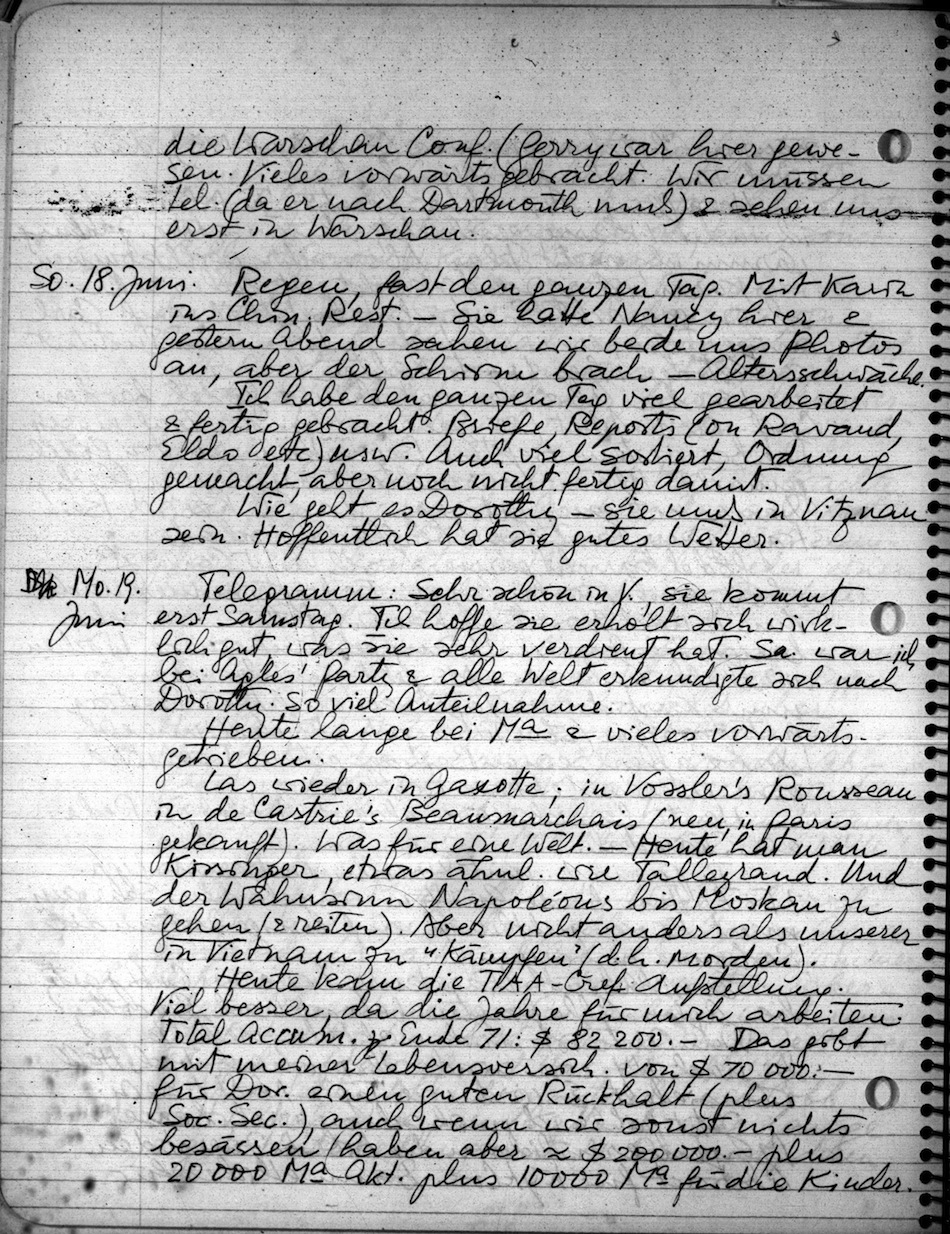 die Warschau Conf. (Gerry war hier gewe-
sen. Vieles vorwärts gebracht. Wir müssen
tel. (da er nach Dartmouth muß) & sehen uns
erst in Warschau.
So. 18. Juni. Regen, fast den ganzen Tag. Mit Karin
ins Chin. Rest. – Sie hatte Nancy hier &
gestern Abend sahen wir beide uns Photos
an, aber der Schirm brach – Altersschwäche.
Ich habe den ganzen Tag viel gearbeitet
& fertig gebracht. Briefe, Reports (on Ravaud,
Eldo etc) usw. Auch viel sortiert, Ordnung
gemacht, aber noch nicht fertig damit.
Wie geht es Dorothy – sie muß in Vitznau
sein. Hoffentlich hat sie gutes Wetter.
Mo. 19. Telegramm: Sehr schön in V., sie kommt
Juni erst Samstag. Ich hoffe sie erholt sich wirk-
lich gut, was sie sehr verdient hat. Sa. war ich
bei party & alle Welt erkundigte sich nach
Dorothy. So viel Anteilnahme.
Heute lange bei Ma & vieles vorwärts-
getrieben.
Las wieder in Gaxotte; in Vossler's Rousseau
in de Castrie's Beaumarchais (neu, in Paris
gekauft). Was für eine Welt. – Heute hat man
Kissinger, etwas ähnl. wie Talleyrand. Und
der Wahnsinn Napoléons bis Moskau zu
gehen (& reiten). Aber nicht anders als unserer
in Vietnam zu "Kämpfen" (d.h. Morden).
Heute kam die TIAA-Cref Aufstellung.
Viel besser, da die Jahre für mich arbeiten.
Total Accum. Ende 71: $ 82 200.– Das gibt
mit meiner Lebensversich. von $ 70 000.–
für Dor. einen guten Rückhalt (plus
Soc. Sec.), auch wenn wir sonst nichts
besässen, haben aber ≈ $ 200 000.– plus
20 000 Ma Akt. plus 10000 Ma für die Kinder.